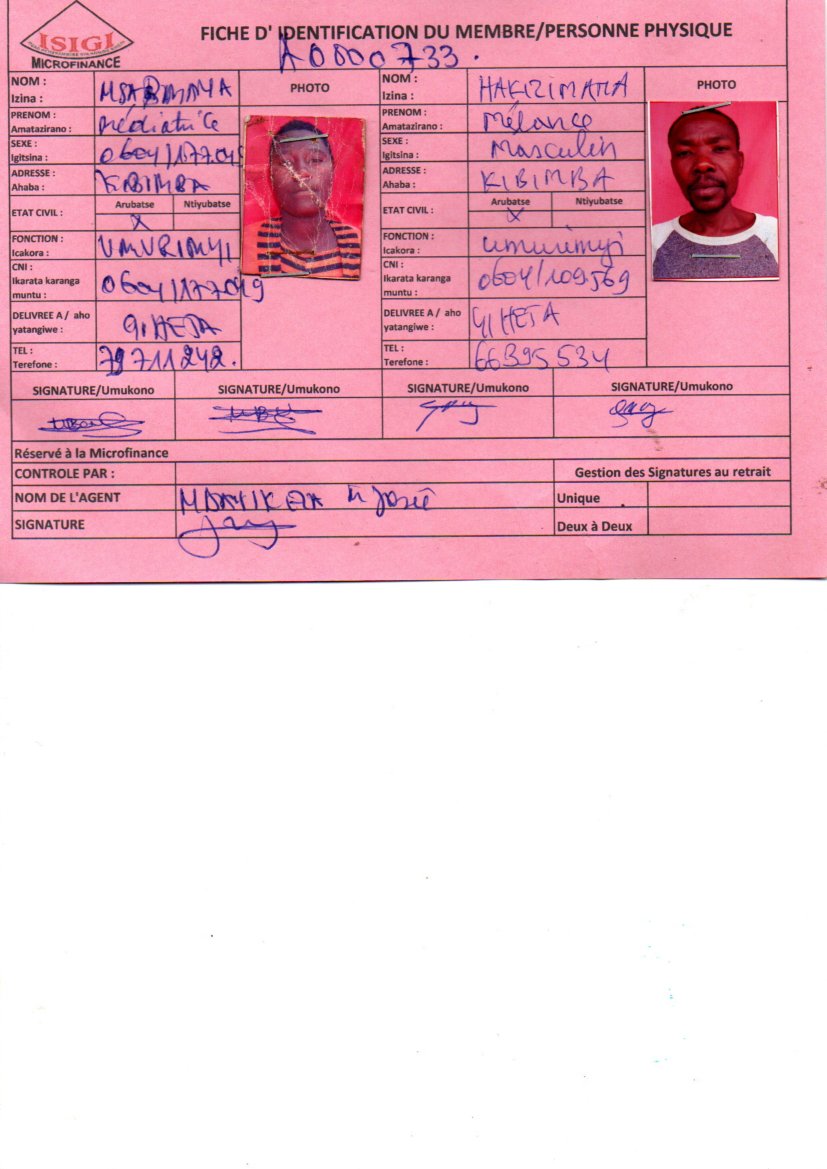 ISIGI
MICROFINANCE
FICHE D' IDENTIFICATION DU MEMBRE/PERSONNE PHYSIQUE
A0000733.
NOM :
Izina :
PHOTO
PRENOM : Médiatrice
Amatazirano :
SEXE : 0604/177049
Igitsina :
ADRESSE : KIBIMBA
Ahaba :
ETAT CIVIL : Arubatse Ntiyubatse
X
FONCTION : UMURIMYI
Icakora :
CNI : 0604/177049
Ikarata karanga
muntu :
DELIVREE A / aho GIHETA
yatangiwe :
TEL : 79711242.
Terefone :
NOM : HAKIZIMANA
Izina :
PHOTO
PRENOM : Mélance
Amatazirano :
SEXE : Masculin
Igitsina :
ADRESSE : KIBIMBA
Ahaba :
ETAT CIVIL : Arubatse Ntiyubatse
X
FONCTION : umurimyi
Icakora :
CNI : 0604/109569
Ikarata karanga
muntu :
DELIVREE A / aho GIHETA
yatangiwe :
TEL : 66395534
Terefone :
SIGNATURE/Umukono SIGNATURE/Umukono SIGNATURE/Umukono SIGNATURE/Umukono
Réservé à la Microfinance
CONTROLE PAR : Gestion des Signatures au retrait
NOM DE L'AGENT Josée Unique
SIGNATURE Deux à Deux